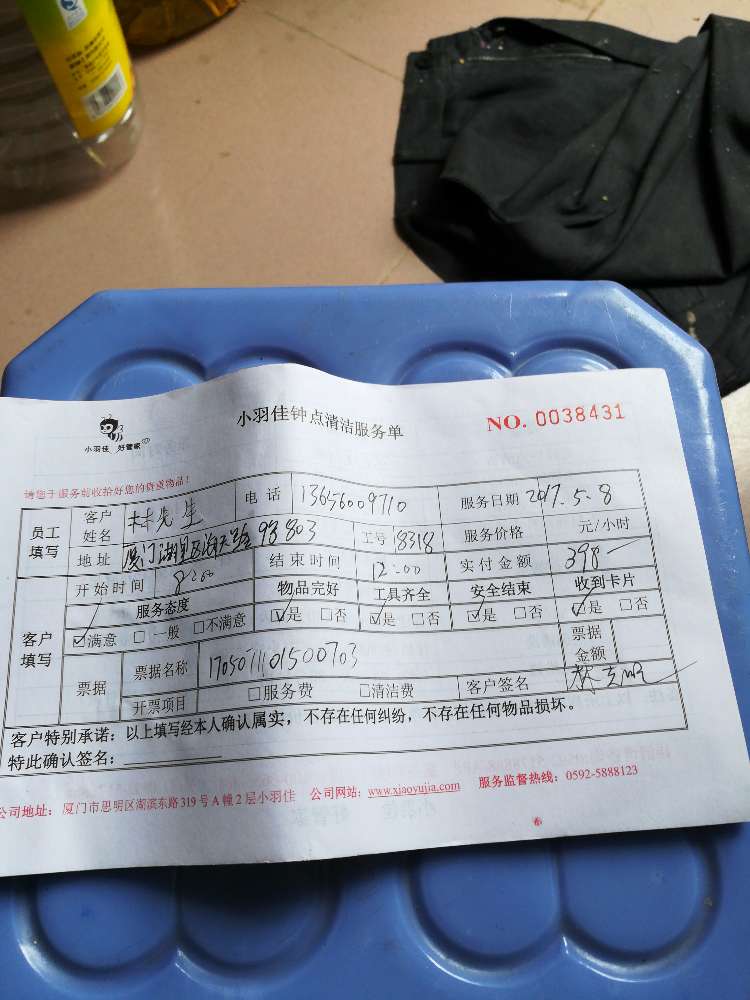 小羽佳 好管家
小羽佳钟点清洁服务单
NO. 0038431
请您于服务前收拾好您的贵重物品!
员工填写 客户姓名 林先生 电话 13656009710 服务日期 2017.5.8
地址 厦门湖里区 93 803 工号 8318 服务价格 元/小时
客户填写 开始时间 8:00 结束时间 12:00 实付金额 398-
服务态度 物品完好 工具齐全 安全结束 收到卡片
☑满意 □一般 □不满意 ☑是 □否 ☑是 □否 ☑是 □否 ☑是 □否
票据 票据名称 1705071101500703 票据金额
开票项目 □服务费 □清洁费 客户签名 林
客户特别承诺:以上填写经本人确认属实,不存在任何纠纷,不存在任何物品损坏。
特此确认签名:
公司地址:厦门市思明区湖滨东路319号A幢2层小羽佳 公司网站:www.xiaoyujia.com 服务监督热线:0592-5888123